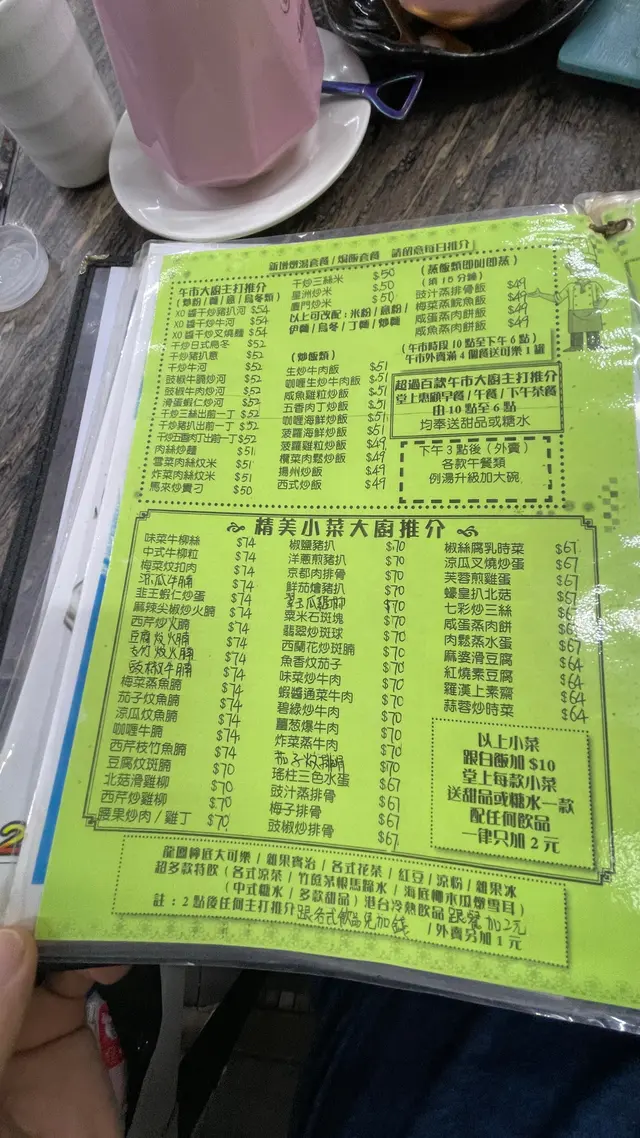 新增燉湯套餐 / 焗飯套餐 請留意每日推介
午市大廚主打推介
(炒粉 / 麵 / 意 / 烏冬類)
XO醬干炒豬扒河 $54
XO醬干炒牛河 $54
XO醬干炒叉燒麵 $54
干炒日式烏冬 $52
干炒豬扒意 $52
干炒牛河 $52
豉椒牛腩炒河 $52
豉椒牛肉炒河 $52
滑蛋蝦仁炒河 $52
干炒三絲出前一丁 $52
干炒豬扒出前一丁 $52
干炒五香肉丁出前一丁 $52
肉絲炒麵 $51
雪菜肉絲炆米 $51
炸菜肉絲炆米 $51
馬來炒貴刁 $50
干炒三絲米 $50
星洲炒米 $50
廈門炒米 $50
以上可改配：米粉 / 意粉 /
伊麵 / 烏冬 / 丁麵 / 炒麵
(炒飯類)
生炒牛肉飯 $51
咖喱生炒牛肉飯 $51
咸魚雞粒炒飯 $51
五香肉丁炒飯 $51
咖喱海鮮炒飯 $51
菠蘿海鮮炒飯 $51
菠蘿雞粒炒飯 $49
欖菜肉鬆炒飯 $49
揚州炒飯 $49
西式炒飯 $49
(蒸飯類即叫即蒸)
(須15分鐘)
豉汁蒸排骨飯 $49
梅菜蒸鯇魚飯 $49
咸蛋蒸肉餅飯 $49
咸魚蒸肉餅飯 $49
(午市時段10點至下午6點)
午市外賣滿4個餐送可樂1罐
超過百款午市大廚主打推介
堂上惠顧早餐 / 午餐 / 下午茶餐
由10點至6點
均奉送甜品或糖水
下午3點後 (外賣)
各款午餐類
例湯升級加大碗
精美小菜大廚推介
味菜牛柳絲 $74
中式牛柳粒 $74
梅菜炆扣肉 $74
涼瓜牛腩 $74
韭王蝦仁炒蛋 $74
麻辣尖椒炒火腩 $74
西芹炒火腩 $74
豆腐炆火腩 $74
支竹炆火腩 $74
豉椒牛腩 $74
梅菜蒸魚腩 $74
茄子炆魚腩 $74
涼瓜炆魚腩 $74
咖喱牛腩 $74
西芹枝竹魚腩 $74
豆腐炆斑腩 $70
北菇滑雞柳 $70
西芹炒雞柳 $70
腰果炒肉 / 雞丁 $70
椒鹽豬扒 $70
洋蔥煎豬扒 $70
京都肉排骨 $70
鮮茄燴豬扒 $70
$70
粟米石斑塊 $70
翡翠炒斑球 $70
西蘭花炒斑腩 $70
魚香炆茄子 $70
味菜炒牛肉 $70
蝦醬通菜牛肉 $70
碧綠炒牛肉 $70
薑蔥爆牛肉 $70
炸菜蒸牛肉 $70
茄子炆排骨 $70
瑤柱三色水蛋 $67
豉汁蒸排骨 $67
梅子排骨 $67
豉椒炒排骨 $67
椒絲腐乳時菜 $67
涼瓜叉燒炒蛋 $67
芙蓉煎雞蛋 $67
蠔皇扒北菇 $67
七彩炒三絲 $67
咸蛋蒸肉餅 $67
肉鬆蒸水蛋 $67
麻婆滑豆腐 $64
紅燒素豆腐 $64
羅漢上素齋 $64
蒜蓉炒時菜 $64
以上小菜
跟白飯加 $10
堂上每款小菜
送甜品或糖水一款
配任何飲品
一律只加2元
龍圈檸底大可樂 / 雜果賓治 / 各式花茶 / 紅豆 / 涼粉 / 雜果冰
超多款特飲 (各式涼茶 / 竹蔗茅根馬蹄水 / 海底椰木瓜燉雪耳)
(中式糖水 / 多款甜品) 港台冷熱飲品跟餐加2元
註：2點後任何主打推介跟各式飲品免加錢 / 外賣另加1元